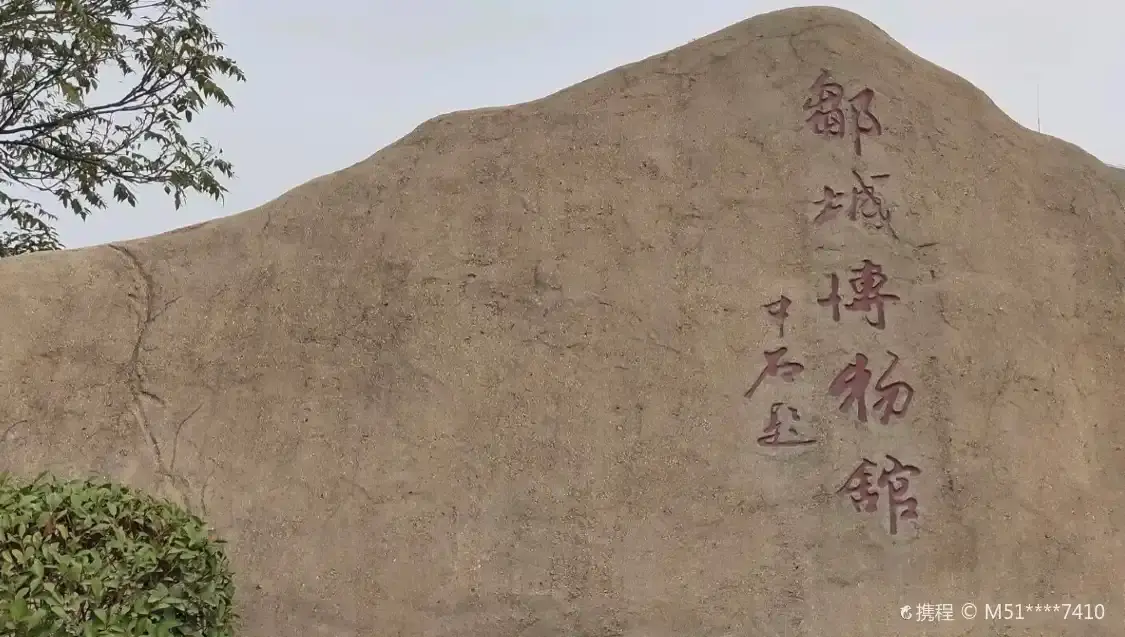 鄒城博物舘
中石题
携程 © M51****7410